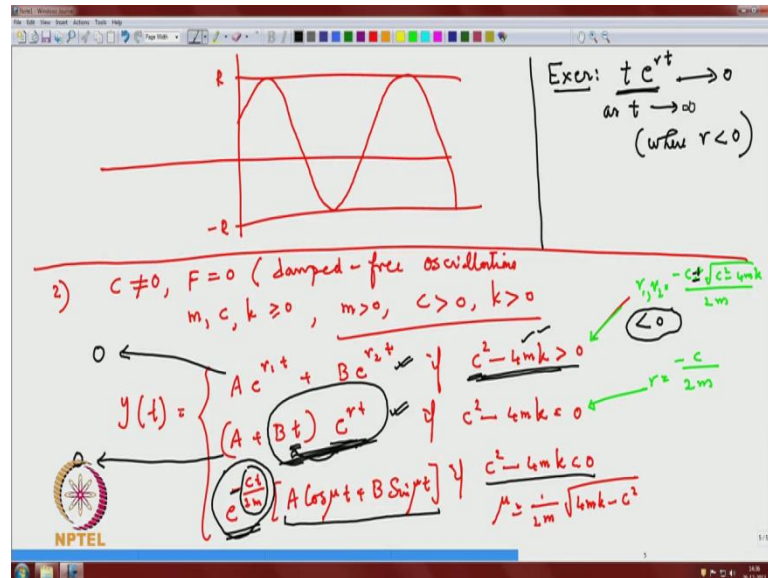 Note1 - Windows Journal
File Edit View Insert Actions Tools Help
Page Width
R
-R
Exer: t e^{rt} → 0
as t → ∞
(where r < 0)
2) C ≠ 0, F = 0 (damped-free oscillations
m, c, k ≥ 0, m > 0, c > 0, k > 0
r₁, r₂ = -c ± √(c² - 4mk) / 2m
< 0
0 ← A e^{r₁t} + B e^{r₂t} if c² - 4mk > 0
y(t) = { (A + Bt) e^{rt} if c² - 4mk = 0
r = -c / 2m
0 ← e^{-ct/2m} [A Cos μt + B Sin μt] if c² - 4mk < 0
μ = 1/2m √(4mk - c²)
NPTEL
5